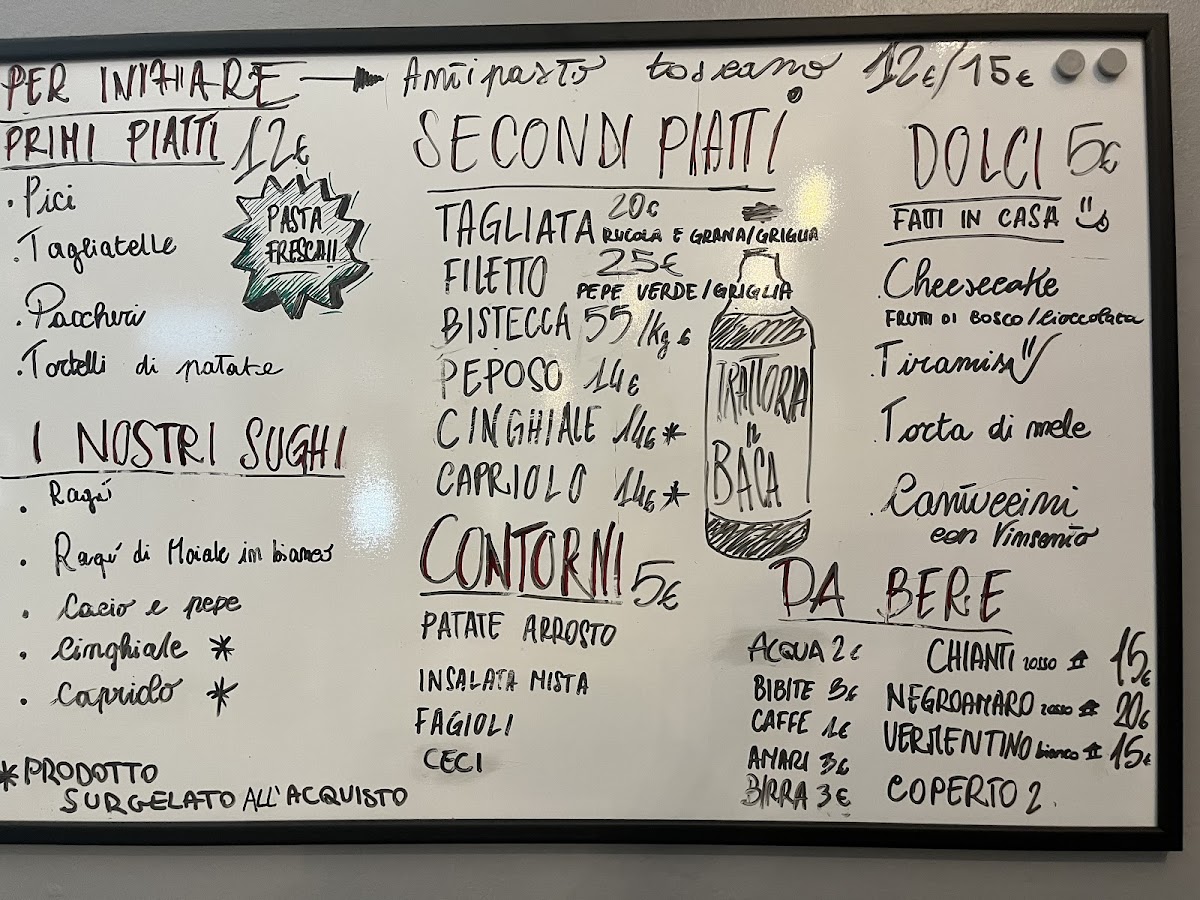 PER INIZIARE → Antipasto toscano 12€/15€
PRIMI PIATTI 12€
PASTA
FRESCA!!
. Pici
. Tagliatelle
. Paccheri
. Tortelli di patate
I NOSTRI SUGHI
. Ragú
. Ragú di Maiale in bianco
. Cacio e pepe
. Cinghiale *
. Capriolo *
* PRODOTTO
SURGELATO ALL'ACQUISTO
SECONDI PIATTI
TAGLIATA 20€
RUCOLA E GRANA/GRIGLIA
FILETTO 25€
PEPE VERDE/GRIGLIA
BISTECCA 55/Kg €
PEPOSO 14€
CINGHIALE 14€ *
CAPRIOLO 14€ *
TRATTORIA
IL
BACA
CONTORNI 5€
PATATE ARROSTO
INSALATA MISTA
FAGIOLI
CECI
DOLCI 5€
FATTI IN CASA
. Cheesecake
FRUTTI DI BOSCO/Cioccolata
. Tiramisú
. Torta di mele
. Cantuccini
con Vinsanto
DA BERE
ACQUA 2€
BIBITE 3€
CAFFE 1€
AMARI 3€
BIRRA 3€
CHIANTI rosso 15€
NEGROAMARO rosso 20€
VERMENTINO bianco 15€
COPERTO 2.